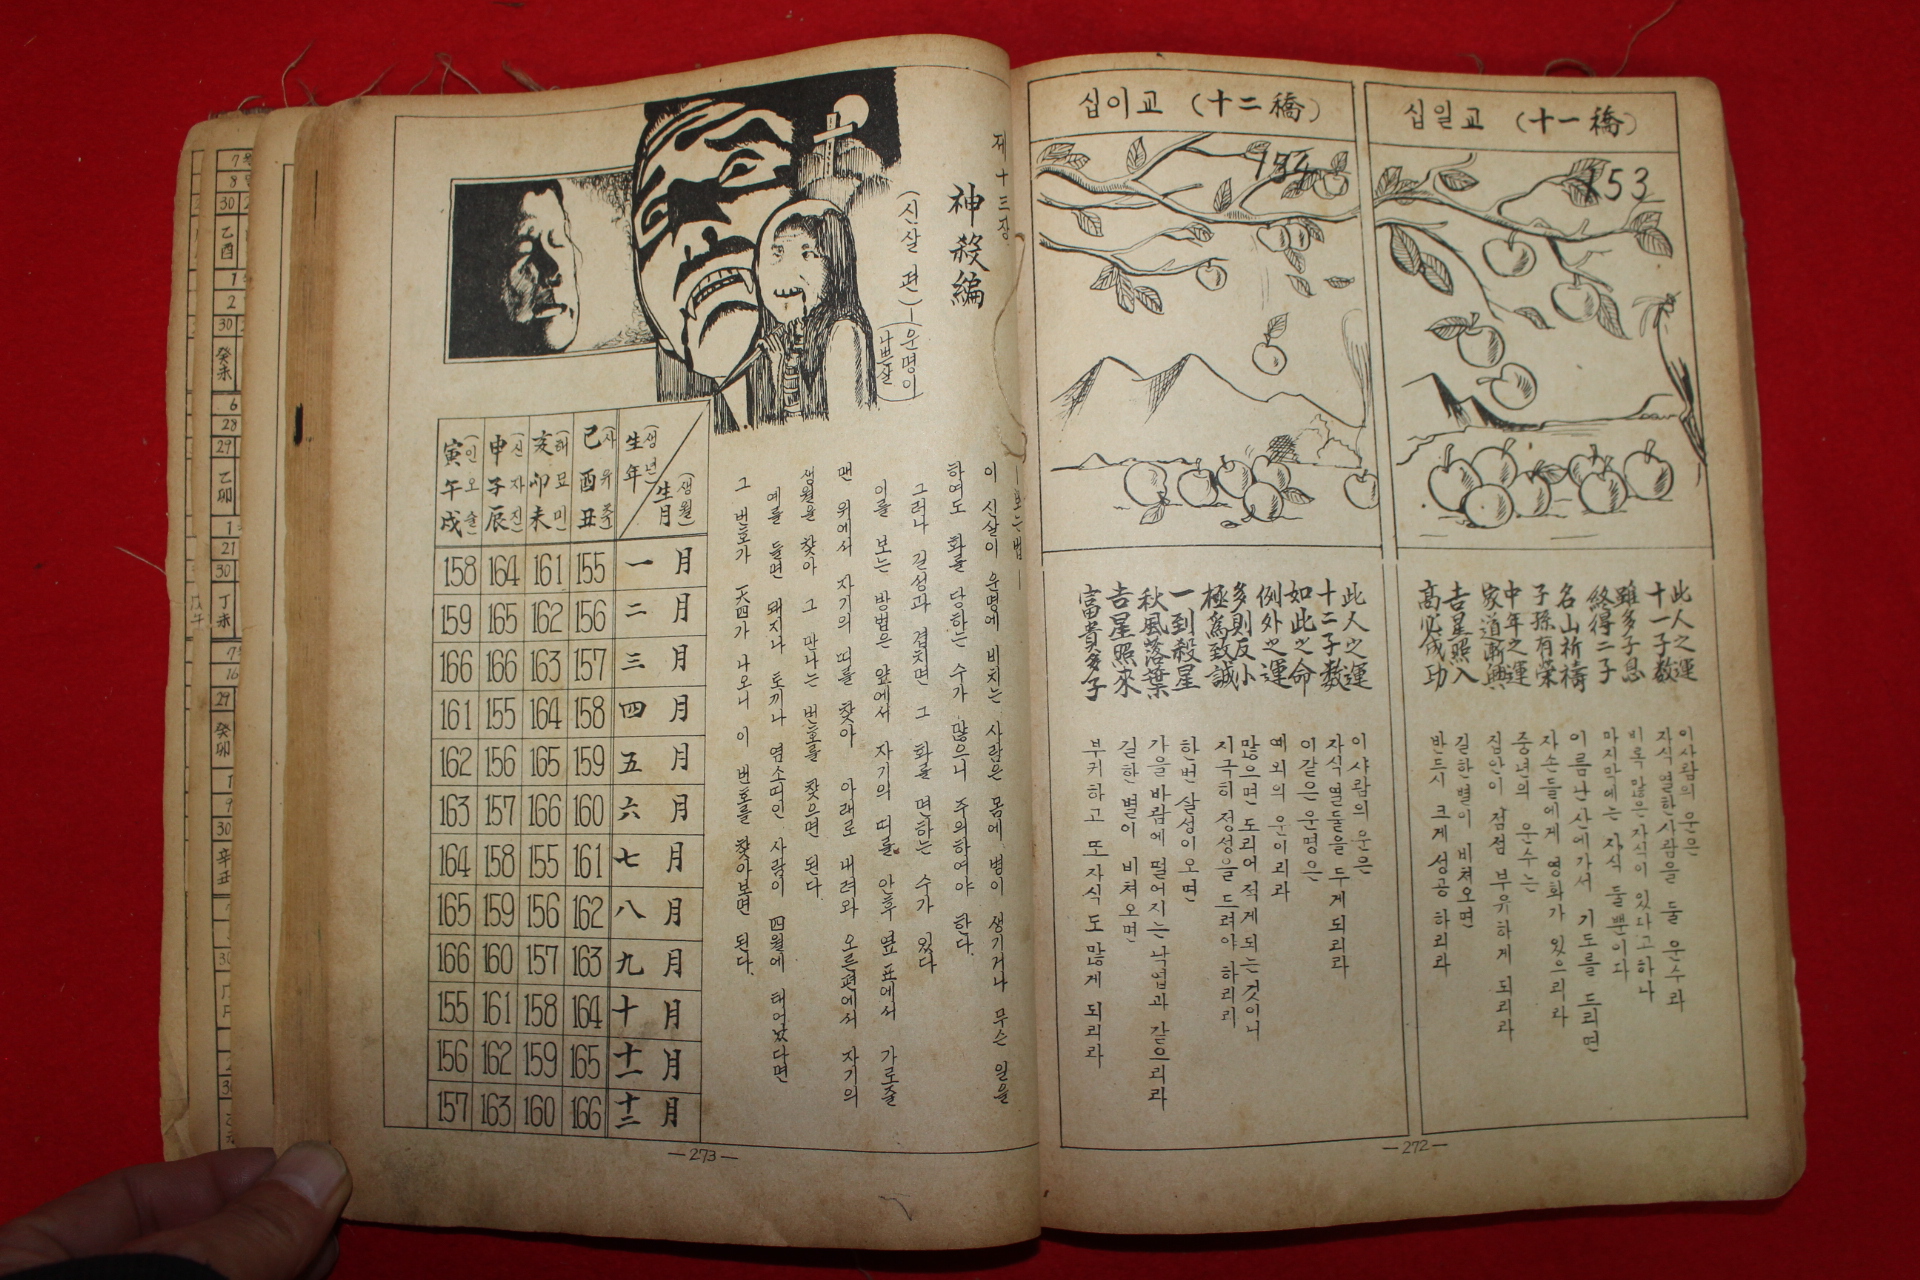 십일교 (十一橋)
153
此人之運
十一子数
雖多子息
終得二子
名山祈禱
子孫有榮
中年之運
家道漸興
吉星照入
高必成功
이사람의 운은
자식 열한사람을 둘 운수라
비록 많은자식이 있다고하나
마지막에는 자식 둘뿐이다
이름난산에가서 기도를 드리면
자손들에게 영화가 있으리라
중년의 운수는
집안이 점점 부유하게 되리라
길한별이 비쳐오면
반드시 크게 성공 하리라
십이교 (十二橋)
154
此人之運
十二子数
如此之命
例外之運
多則反小
極為致誠
一到殺星
秋風落葉
吉星照來
富貴多子
이사람의 운은
자식 열둘을 두게되리라
이같은 운명은
예외의 운이리라
많으면 도리어 적게 되는것이니
지극히 정성을 드려야 하리리
한번 살성이오면
가을바람에 떨어지는 낙엽과 같으리라
길한 별이 비쳐오면
부귀하고 또 자식도 많게 되리라
—272—
제十三장
神殺編
(신살 편)—(운명이 나쁜살)
—보는법—
이 신살이 운명에 비치는 사람은 몸에 병이 생기거나 무슨 일을
하여도 화를 당하는 수가 많으니 주의하여야 한다.
그러나 길성과 겹치면 그 화를 면하는 수가 있다
이를 보는 방법은 앞에서 자기의 띠를 안후 옆 표에서 가로줄
맨 위에서 자기의 띠를 찾아 아래로 내려와 오른편에서 자기의
생월을 찾아 그 만나는 번호를 찾으면 된다.
예를 들면 돼지나 토끼나 염소띠인 사람이 四월에 태어났다면
그 번호가 一六四가 나오니 이 번호를 찾아보면 된다.
寅午戌 (인오술) 申子辰 (신자진) 亥卯未 (해묘미) 巳酉丑 (사유축) 生年 (생년) 生月 (생월)
158 164 161 155 一月
159 165 162 156 二月
166 166 163 157 三月
161 155 164 158 四月
162 156 165 159 五月
163 157 166 160 六月
164 158 155 161 七月
165 159 156 162 八月
166 160 157 163 九月
155 161 158 164 十月
156 162 159 165 十一月
157 163 160 166 十二月
—273—
30
乙酉
1
2
30
癸未
6
28
29
乙卯
1
21
30
丁未
16
29
癸卯
1
9
30
辛丑